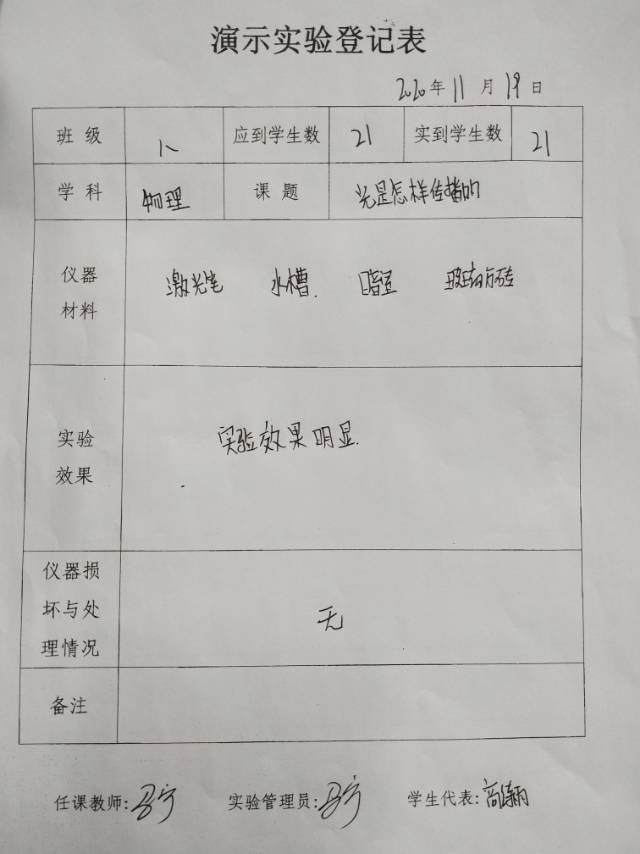 演示实验登记表
2020年11月19日
班级 八 应到学生数 21 实到学生数 21
学科 物理 课题 光是怎样传播的
仪器材料 激光笔 水槽 暗室 玻璃方砖
实验效果 实验效果明显.
仪器损坏与处理情况 无
备注
任课教师: 实验管理员: 学生代表: